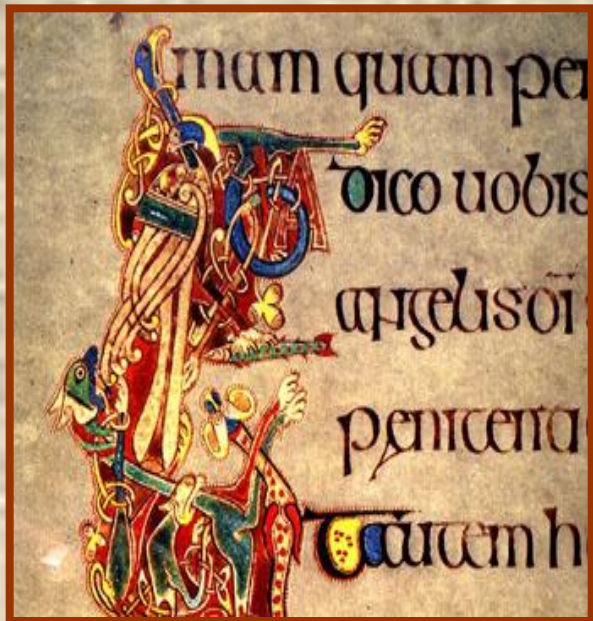 mam quam per
dico uobis
angelis di
peniten
t autem h